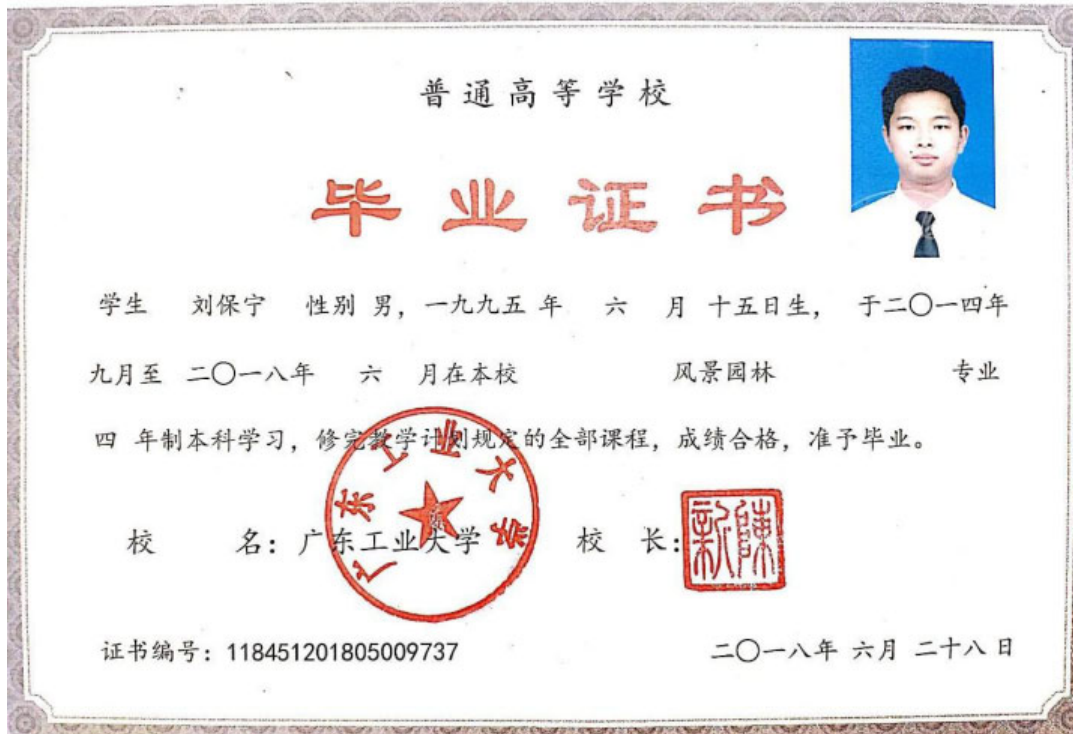 普通高等学校
毕业证书
学生 刘保宁 性别 男，一九九五 年 六 月 十五日生， 于二〇一四年
九月至 二〇一八年 六 月在本校 风景园林 专业
四 年制本科学习，修完教学计划规定的全部课程，成绩合格，准予毕业。
校 名：广东工业大学 校 长：
广东工业大学
陳新
证书编号：118451201805009737 二〇一八年 六月 二十八日